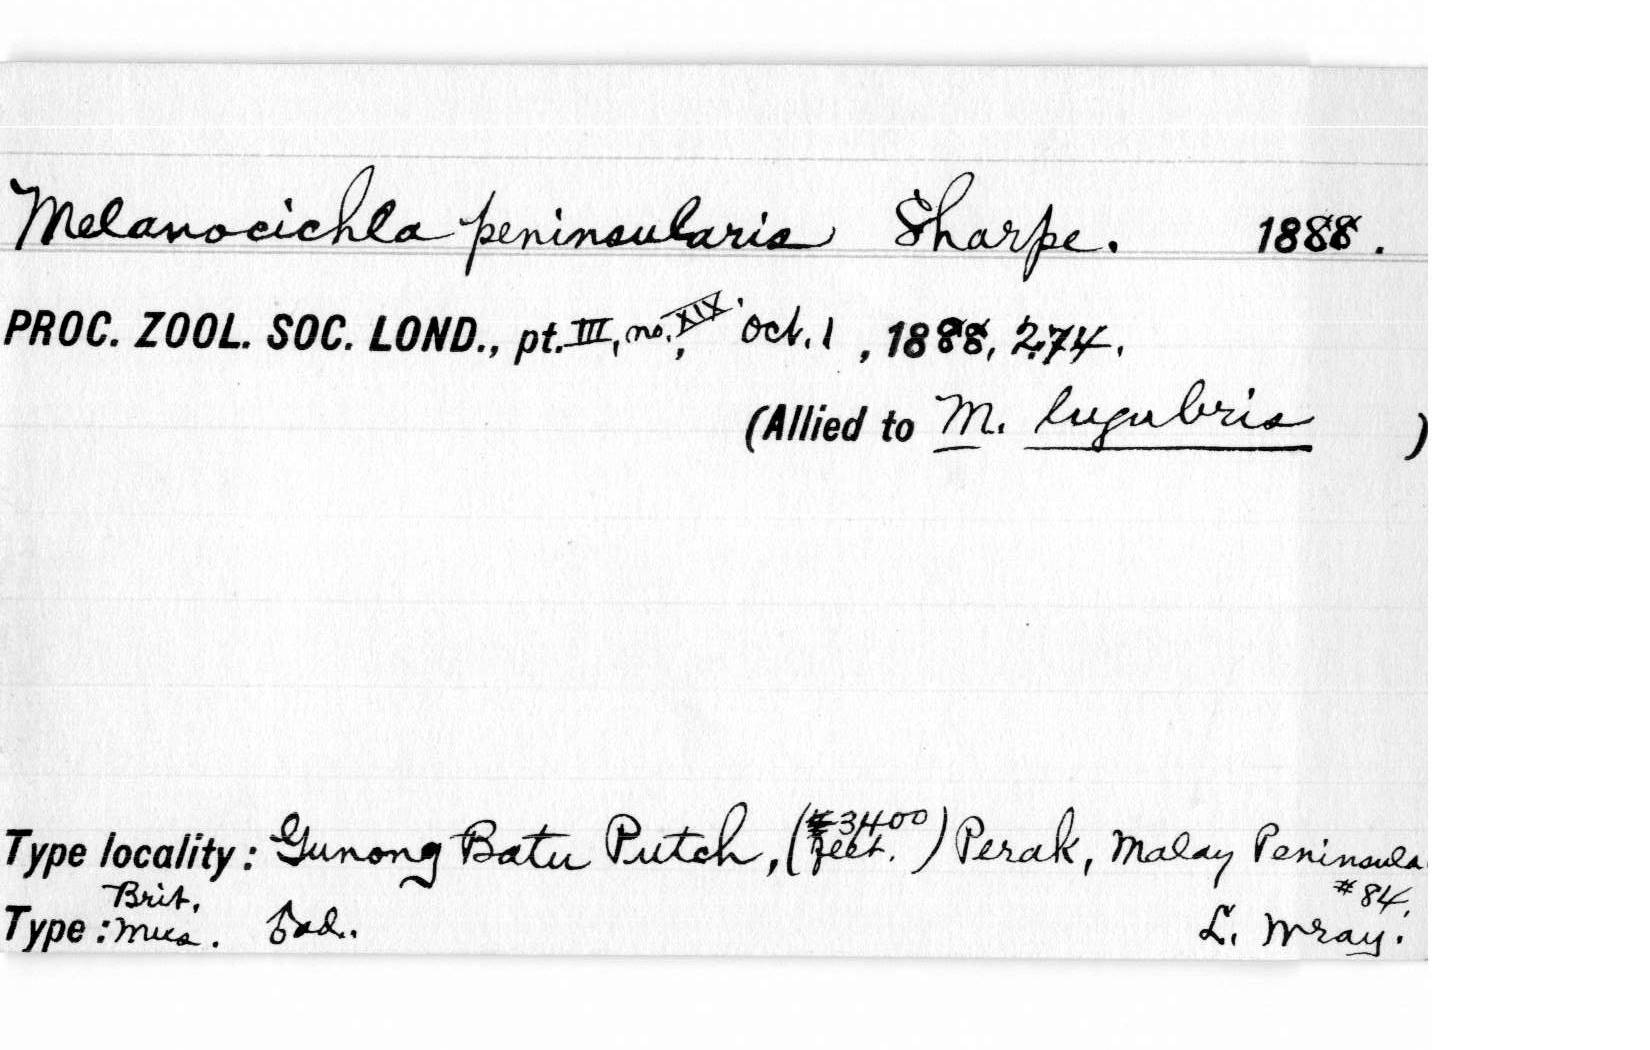 Melanocichla peninsularis Sharpe. 1888.
PROC. ZOOL. SOC. LOND., pt. III, no. XIX, Oct. 1, 1888, 274.
(Allied to M. lugubris )
Type locality: Gunong Batu Putch, (3400 feet.) Perak, Malay Peninsula
Type: Brit. Mus. Ead.. #84, L. Wray.